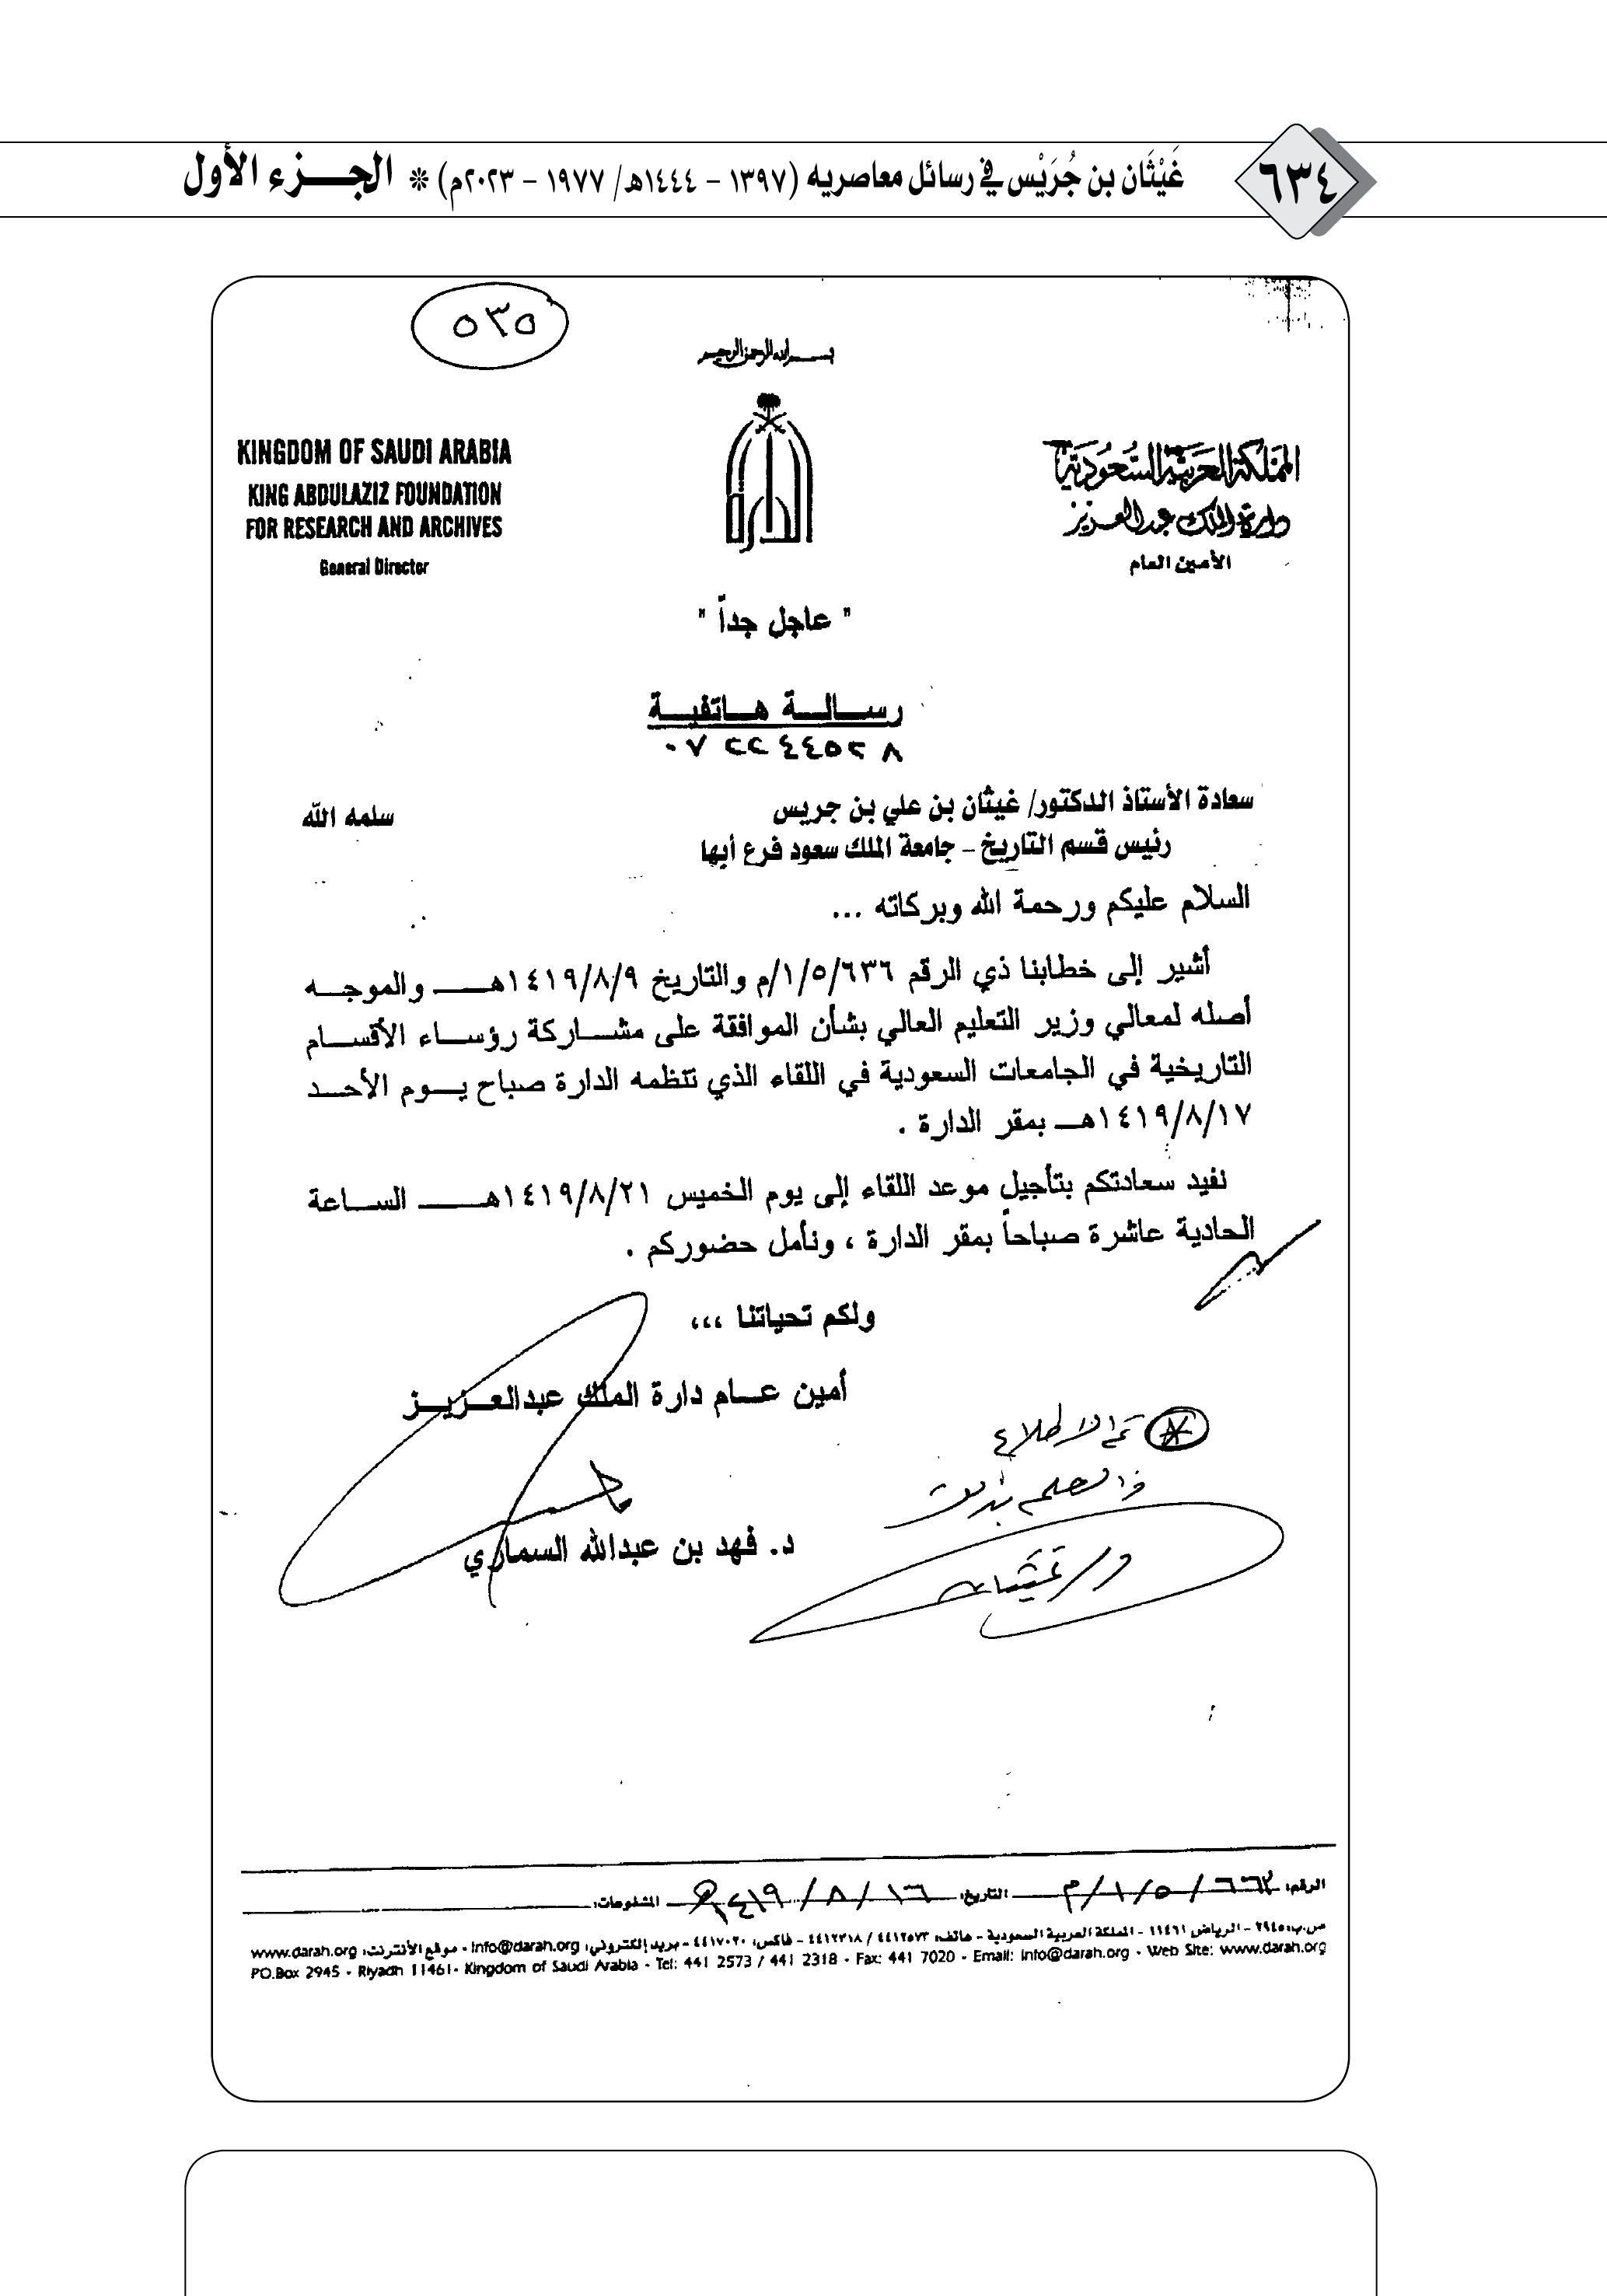 ٦٣٤
غَيْثَان بن جُرَيْس في رسائل معاصريه (١٣٩٧ - ١٤٤٤هـ/ ١٩٧٧ - ٢٠٢٣م) * الجزء الأول
٥٣٥
بسم الله الرحمن الرحيم
المملكة العربية السعودية
دارة الملك عبد العزيز
الأمين العام
KINGDOM OF SAUDI ARABIA
KING ABDULAZIZ FOUNDATION
FOR RESEARCH AND ARCHIVES
General Director
" عاجل جداً "
رسالة هاتفية
سعادة الأستاذ الدكتور/ غيثان بن علي بن جريس سلمه الله
رئيس قسم التاريخ – جامعة الملك سعود فرع أبها
السلام عليكم ورحمة الله وبركاته ...
أشير إلى خطابنا ذي الرقم ١/٥/٦٣٦/م والتاريخ ١٤١٩/٨/٩هـ والموجه
أصله لمعالي وزير التعليم العالي بشأن الموافقة على مشاركة رؤساء الأقسام
التاريخية في الجامعات السعودية في اللقاء الذي تنظمه الدارة صباح يوم الأحد
١٤١٩/٨/١٧هـ بمقر الدارة .
نفيد سعادتكم بتأجيل موعد اللقاء إلى يوم الخميس ١٤١٩/٨/٢١هـ الساعة
الحادية عاشرة صباحاً بمقر الدارة ، ونأمل حضوركم .
ولكم تحياتنا ،،،
أمين عام دارة الملك عبدالعزيز
د. فهد بن عبدالله السماري
تم الاطلاع
والعلم بذلك
د/ غيثان
الرقم: ٦٦٢/٥/١/م التاريخ: ١٦/٨/١٤١٩هـ المشفوعات:
ص.ب: ٢٩٤٥ - الرياض ١١٤٦١ - المملكة العربية السعودية - هاتف: ٤٤١٢٥٧٣ / ٤٤١٢٣١٨ - فاكس: ٤٤١٧٠٢٠ - بريد إلكتروني: info@darah.org - موقع الأنترنت: www.darah.org
PO.Box 2945 - Riyadh 11461- Kingdom of Saudi Arabia - Tel: 441 2573 / 441 2318 - Fax: 441 7020 - Email: info@darah.org - Web Site: www.darah.org